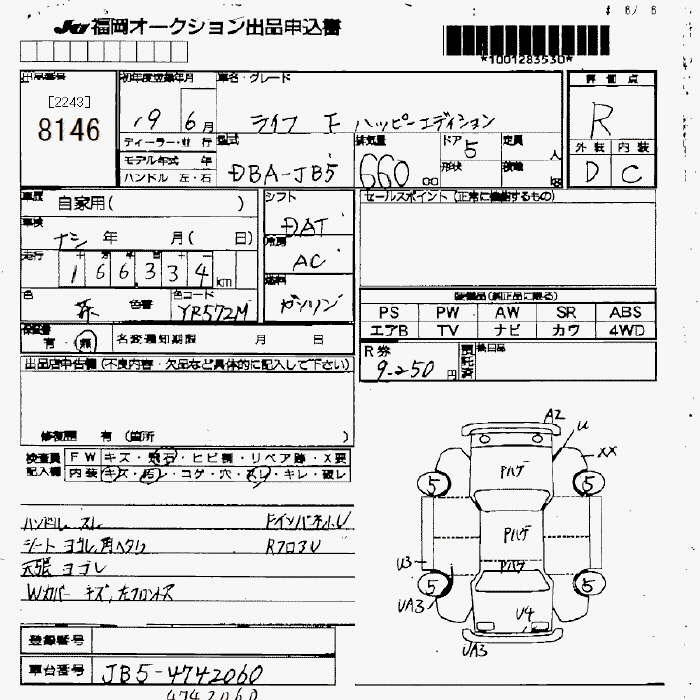 JU 福岡オークション出品申込書
*1001283530*
出品番号
[2243]
8146
初年度登録年月
19 6月
車名・グレード
ライフ F ハッピーエディション
評価点
R
外装 内装
D C
ディーラー・並行
モデル年式 年
ハンドル 左・右
型式
DBA-JB5
排気量
660 cc
ドア 5
形状
定員 人
積載 kg
車歴 自家用( )
車検 ナシ 年 月( 日)
走行 166,334 km
色 茶 色番
色コード YR572M
シフト
DAT
冷房
AC
燃料
ガソリン
セールスポイント(正常に機能するもの)
装備品(純正品に限る)
PS PW AW SR ABS
エアB TV ナビ カワ 4WD
保証書 有・無
名変通知期限 月 日
R券 9250円
預託済
後日品
出品店申告欄(不良内容・欠品など具体的に記入して下さい)
修復歴 有(箇所 )
検査員記入欄
FW キズ・飛石・ヒビ割・リペア跡・X要
内装 キズ・汚レ・コゲ・穴・スレ・キレ・破レ
ハンドル スレ
ドインパネ小U
シート ヨゴレ、角ヘタリ
Rフロア U
天張 ヨゴレ
Wカバー キズ、
A2
U
XX
Pハゲ
5
5
Pハゲ
Pハゲ
U3
5
5
UA3
U4
UA3
登録番号
車台番号 JB5-4742060
4742060